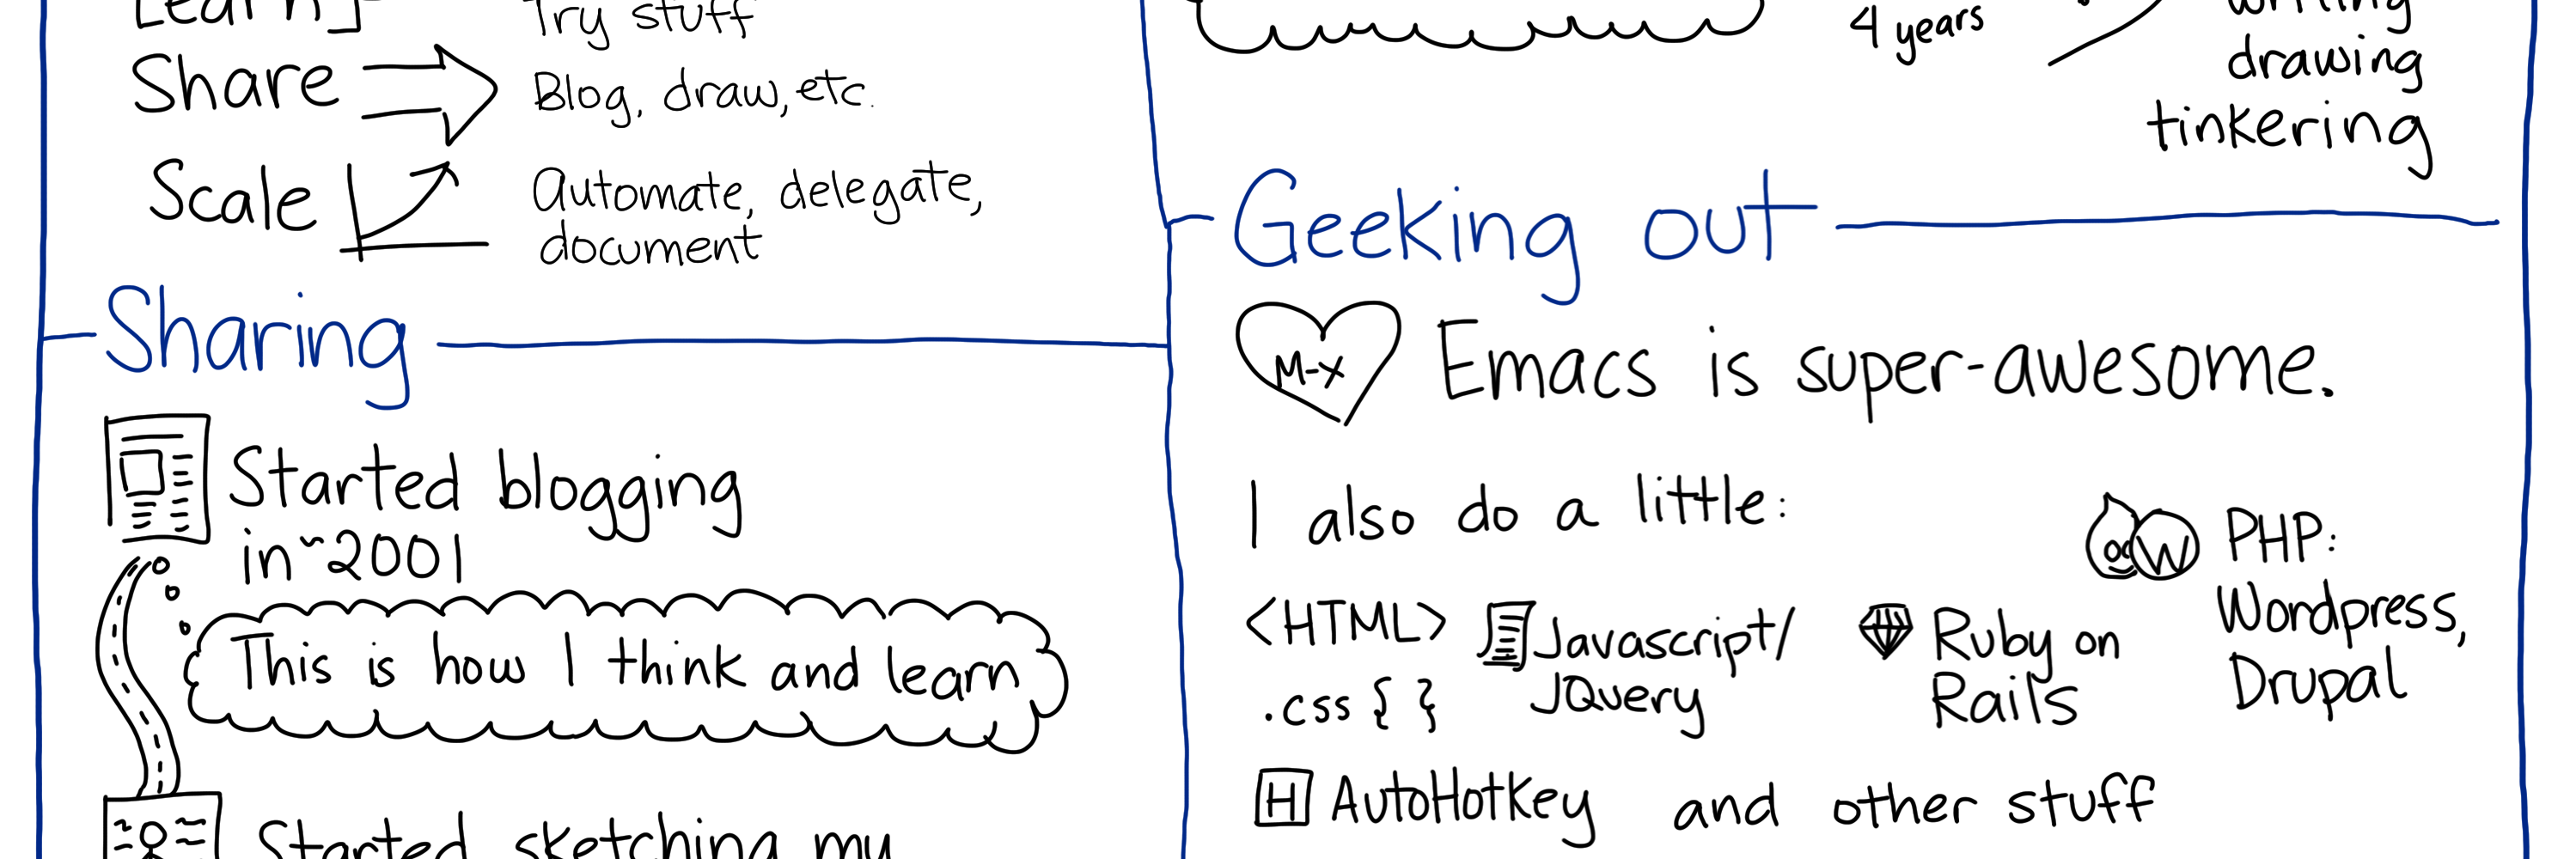 Learn
Try stuff
Share
Blog, draw, etc.
Scale
Automate, delegate,
document
Sharing
Started blogging
in ~2001
This is how I think and learn
Started sketching my
4 years
writing
drawing
tinkering
Geeking out
M-x
Emacs is super-awesome.
I also do a little:
<HTML>
.css { }
Javascript/
JQuery
Ruby on
Rails
W
PHP:
Wordpress,
Drupal
H
AutoHotkey and other stuff